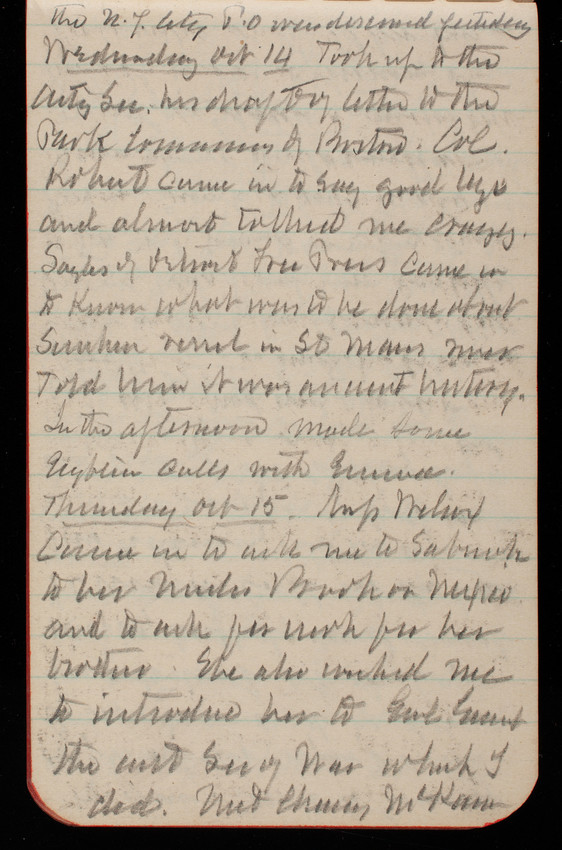 the N.Y. City P.O was discussed yesterday
Wednesday Oct 14 Took up to the
Actg Sec. his draft of letter to the
Park Commrs of Boston. Col.
Robert came in to say good bye
and almost talked me crazy.
Sayles of Detroit Free Press came in
to know what was to be done about
Sunken vessel in St Marys river
Told him it was ancient history.
In the afternoon made some
calls with Emma.
Thursday Oct 15.
Came in to ask me to Subscribe
to her Book on Mexico
and to ask for work for her
brother She also wished me
to introduce her to Genl Grant
the Sec of War which I
did. Met McKeever